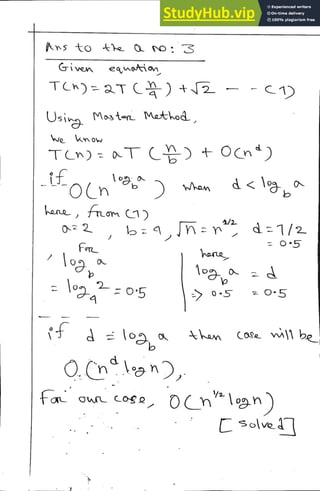 StudyHub.vip
Experienced writers
On-time delivery
Plagiarism free
Ans to the Q no: 3
Given equation,
T(n) = 2T (n/9) + √2 - - - (1)
Using Master Method,
We know
T(n) = aT (n/b) + O(n^d)
if O(n^log_b a) when d < log_b a
here, from (1)
a=2, b=9, √n = n^1/2, d=1/2 = 0.5
For,
log_b a
= log_9 2 = 0.5
here,
log_b a = d
=> 0.5 = 0.5
if d = log_b a then case will be
O(n^d log n),
For our case, O(n^1/2 log n)
[solved]